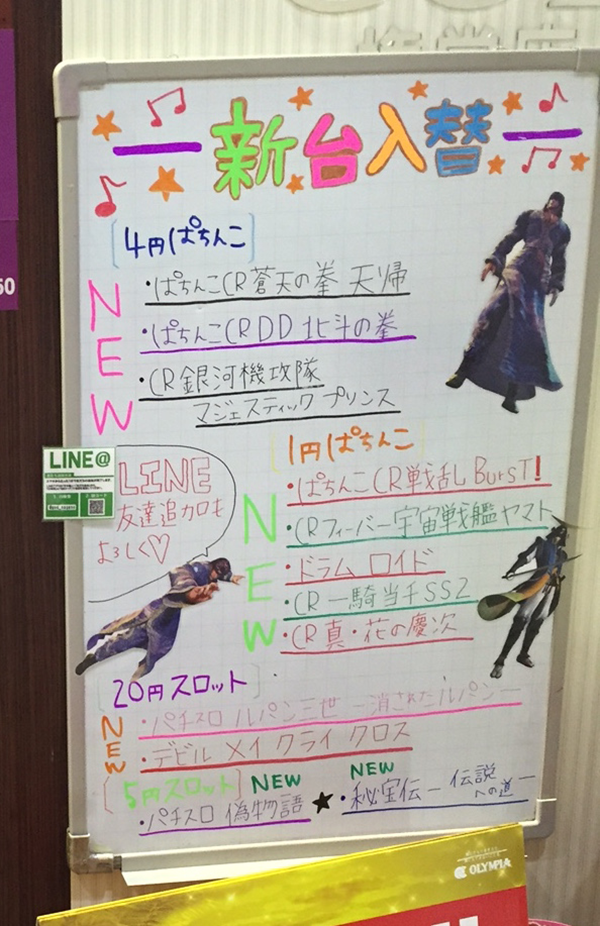 新台入替
4円ぱちんこ
NEW
・ぱちんこCR蒼天の拳 天帰
・ぱちんこCRDD北斗の拳
・CR銀河機攻隊
マジェスティックプリンス
1円ぱちんこ
NEW
・ぱちんこCR戦乱BursT!
・CRフィーバー宇宙戦艦ヤマト
・ドラムロイド
・CR一騎当千SS2
・CR真・花の慶次
LINE@
LINE
友達追加も
よろしく♡
20円スロット
NEW
・パチスロ ルパン三世 ー消されたルパンー
・デビル メイ クライ クロス
5円スロット
NEW
・パチスロ 偽物語
★
NEW
・秘宝伝ー伝説への道ー
OLYMPIA
50